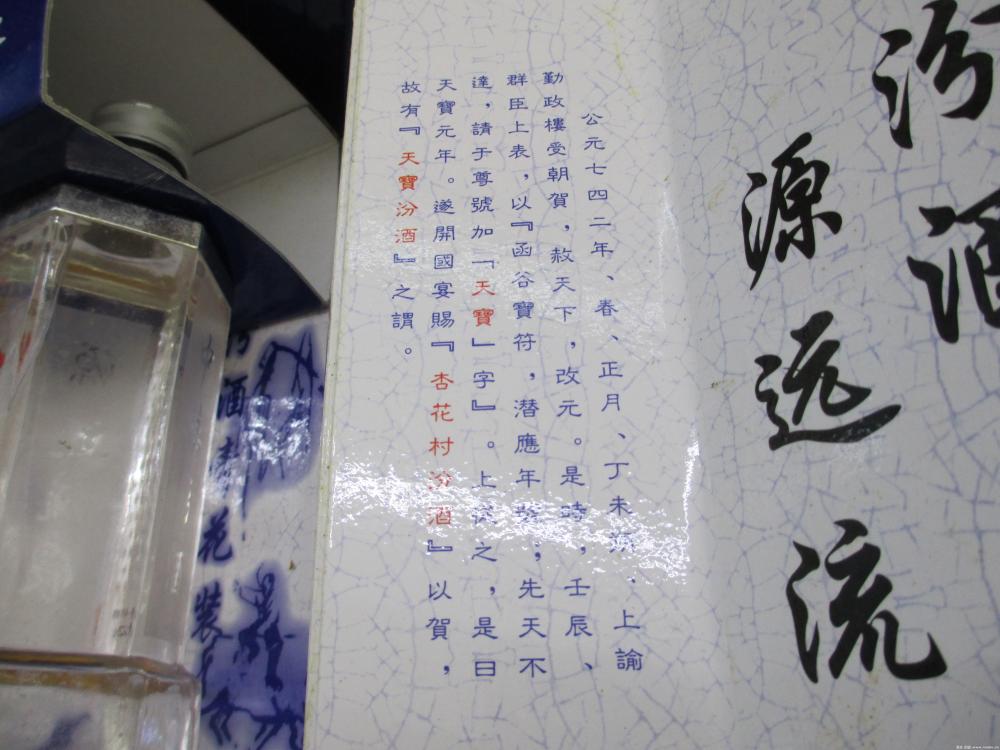 汾酒
源远流
公元七四二年、春、正月、丁未朔,上諭
勤政樓受朝賀,赦天下,改元。是時,壬辰、
群臣上表,以『函谷寶符,潜應年號;先天不
達,請于尊號加「天寶」字』。上從之,是日
天寶元年。遂開國宴賜『杏花村汾酒』以賀,
故有『天寶汾酒』之謂。
酒
花
装